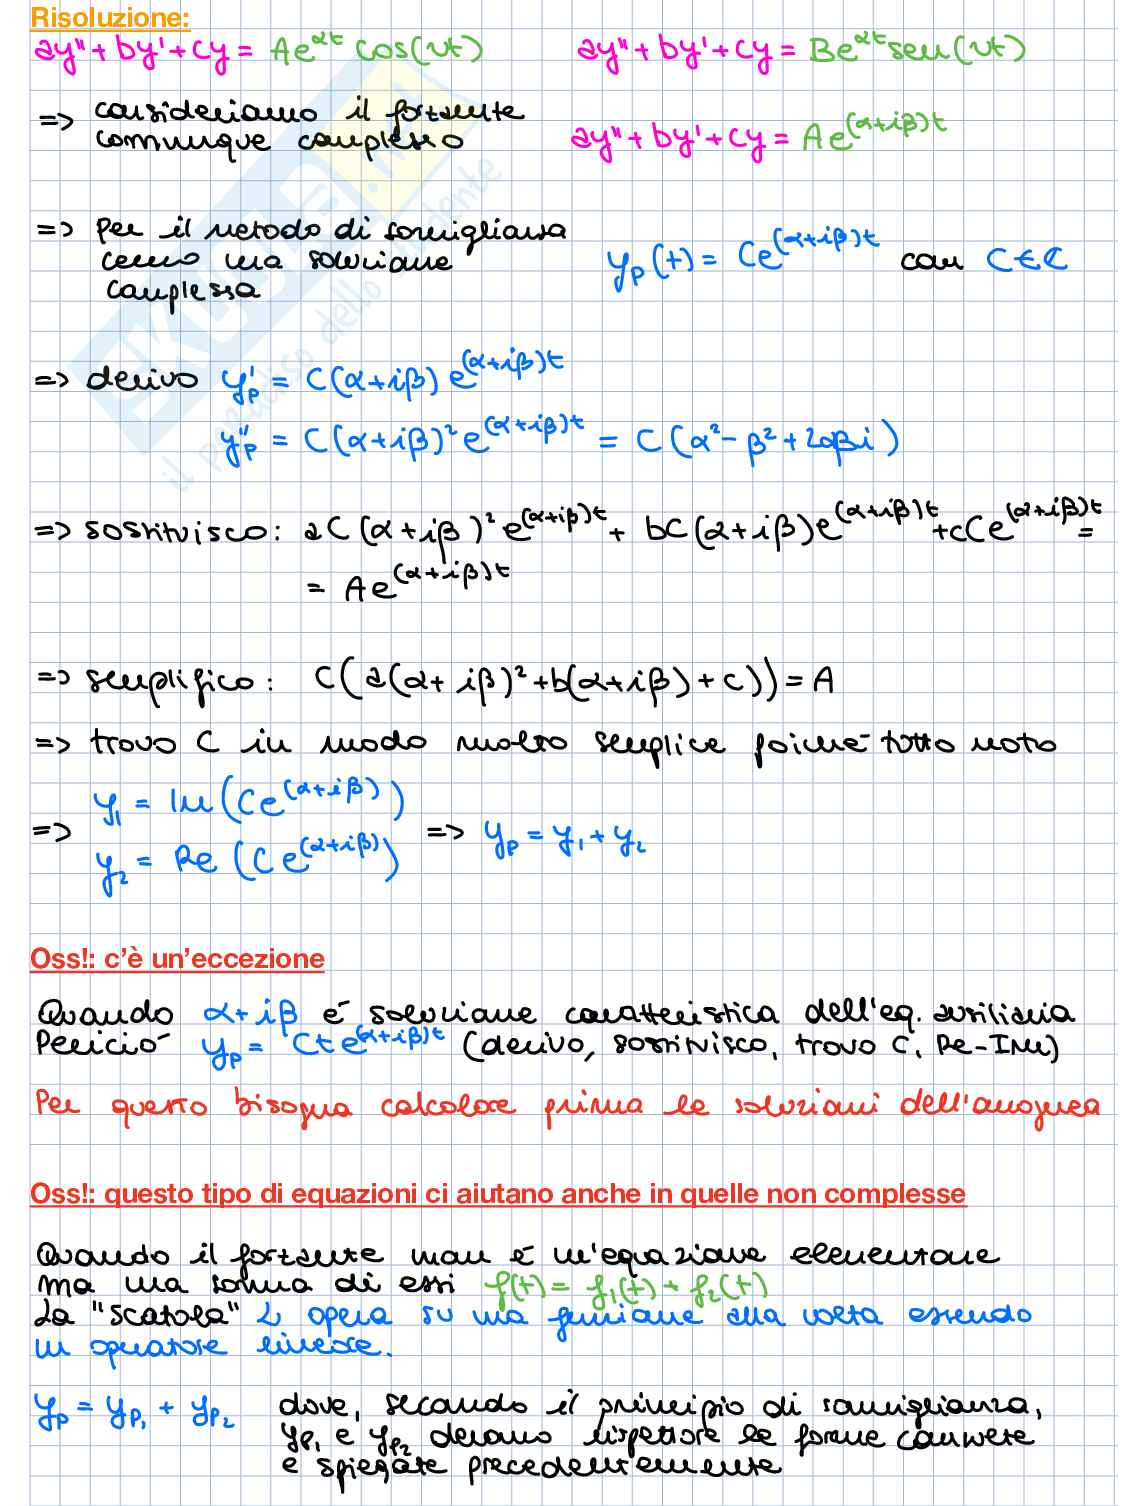 Risoluzione:
ay'' + by' + cy = Ae^{αt} cos(νt)    ay'' + by' + cy = Be^{αt} sen(νt)
=> consideriamo il forzante
comunque complesso    ay'' + by' + cy = Ae^{(α+iβ)t}
=> Per il metodo di somiglianza
cerco una soluzione    y_p(t) = Ce^{(α+iβ)t} con C ∈ ℂ
complessa
=> derivo y'_p = C(α+iβ) e^{(α+iβ)t}
y''_p = C(α+iβ)² e^{(α+iβ)t} = C(α² - β² + 2αβi)
=> sostituisco: aC(α+iβ)² e^{(α+iβ)t} + bC(α+iβ)e^{(α+iβ)t} + cCe^{(α+iβ)t} =
= Ae^{(α+iβ)t}
=> semplifico: C(a(α+iβ)² + b(α+iβ) + c)) = A
=> trovo C in modo molto semplice poiché tutto noto
y₁ = Im(Ce^{(α+iβ)})
=>    => y_p = y₁ + y₂
y₂ = Re(Ce^{(α+iβ)})
Oss!: c'è un'eccezione
Quando α+iβ é soluzione caratteristica dell'eq. ausiliaria
Perciò y_p = Cte^{(α+iβ)t} (derivo, sostituisco, trovo C, Re-Im)
Per questo bisogna calcolare prima le soluzioni dell'omogenea
Oss!: questo tipo di equazioni ci aiutano anche in quelle non complesse
Quando il forzante non é un'equazione elementare
ma una somma di essi f(t) = f₁(t) + f₂(t)
La "scatola" L opera su una funzione alla volta essendo
un operatore lineare.
y_p = y_{p₁} + y_{p₂}    dove, secondo il principio di somiglianza,
y_{p₁} e y_{p₂} devono rispettare le forme
e spiegate precedentemente
SKUOLA.net
il paradiso dello studente